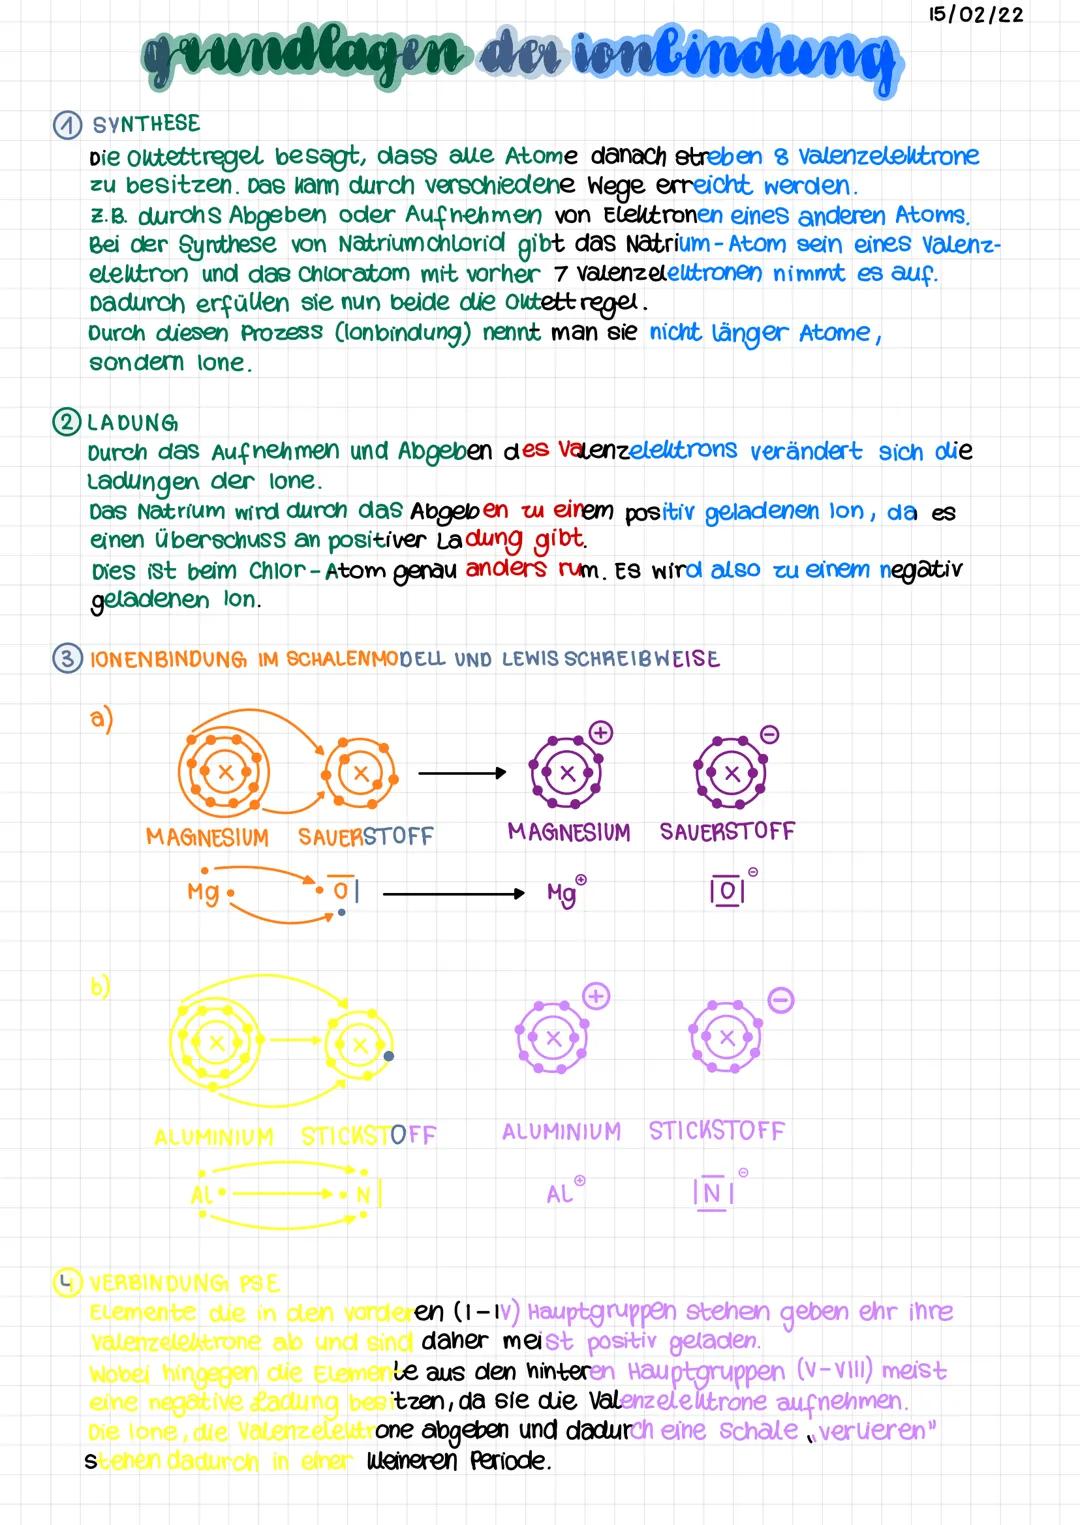 15/02/22
grundlagen der ionbindung
1 SYNTHESE
Die Oktettregel besagt, dass alle Atome danach streben 8 Valenzelektrone
zu besitzen. Das kann durch verschiedene Wege erreicht werden.
z.B. durchs Abgeben oder Aufnehmen von Elektronen eines anderen Atoms.
Bei der Synthese von Natriumchlorid gibt das Natrium-Atom sein eines Valenz-
elektron und das Chloratom mit vorher 7 Valenzelektronen nimmt es auf.
Dadurch erfüllen sie nun beide die Oktettregel.
Durch diesen Prozess (Ionbindung) nennt man sie nicht länger Atome,
sondern Ione.
2 LADUNG
Durch das Aufnehmen und Abgeben des Valenzelektrons verändert sich die
Ladungen der Ione.
Das Natrium wird durch das Abgeben zu einem positiv geladenen Ion, da es
einen Überschuss an positiver Ladung gibt.
Dies ist beim Chlor-Atom genau anders rum. Es wird also zu einem negativ
geladenen Ion.
3 IONENBINDUNG IM SCHALENMODELL UND LEWIS SCHREIBWEISE
a)
MAGNESIUM SAUERSTOFF MAGNESIUM SAUERSTOFF
Mg O Mg⊕ O⊖
b)
ALUMINIUM STICKSTOFF ALUMINIUM STICKSTOFF
AL N AL⊕ N⊖
4 VERBINDUNG PSE
Elemente die in den vorderen (I-IV) Hauptgruppen stehen geben ehr ihre
Valenzelektrone ab und sind daher meist positiv geladen.
Wobei hingegen die Elemente aus den hinteren Hauptgruppen (V-VIII) meist
eine negative Ladung besitzen, da sie die Valenzelektrone aufnehmen.
Die Ione, die Valenzelektrone abgeben und dadurch eine Schale „verlieren"
stehen dadurch in einer kleineren Periode.